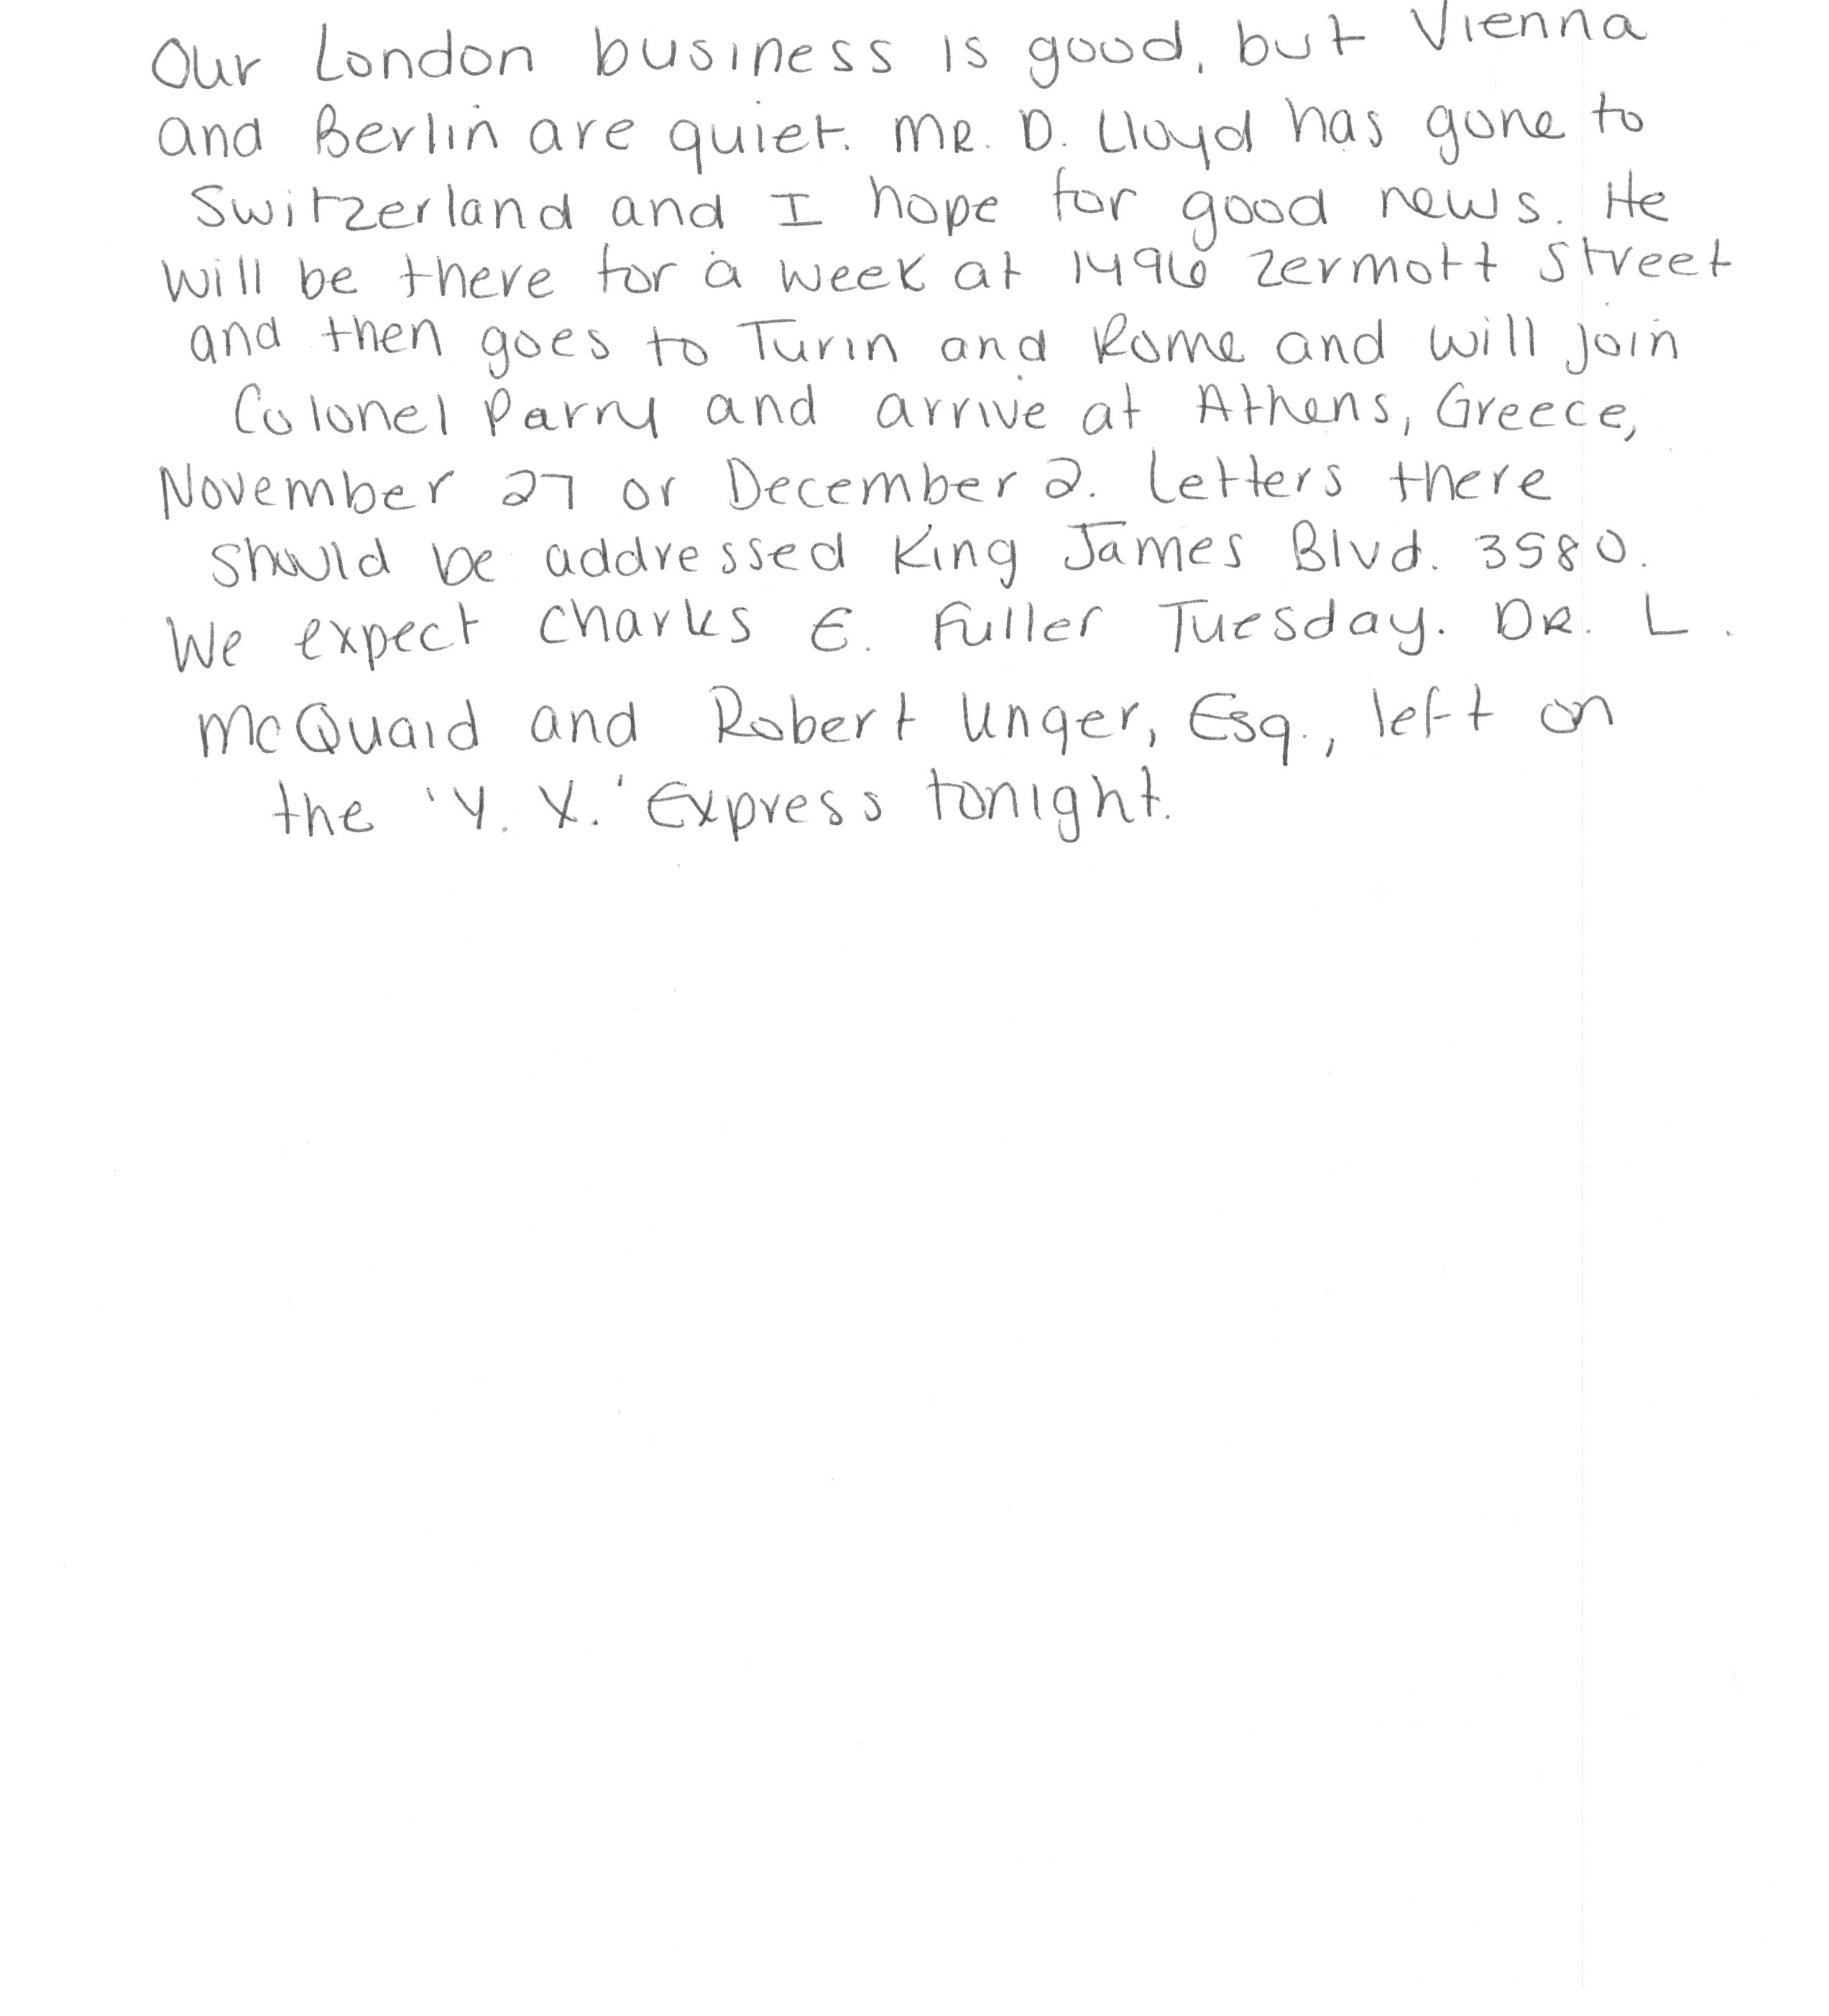 Our London business is good, but Vienna
and Berlin are quiet. Mr. D. Lloyd has gone to
Switzerland and I hope for good news. He
will be there for a week at 1496 Zermott Street
and then goes to Turin and Rome and will join
Colonel Parry and arrive at Athens, Greece,
November 27 or December 2. Letters there
should be addressed King James Blvd. 3580.
We expect Charles E. Fuller Tuesday. Dr. L.
McQuaid and Robert Unger, Esq., left on
the 'Y. X.' Express tonight.